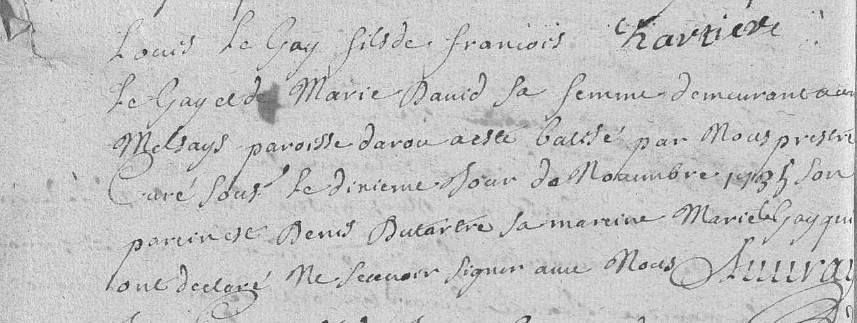 Louis Le Gay fils de francois
Le Gay et de Marie David sa femme demeurant au
Melsays paroisse darou a esté batisé par Nous prestre
Curé sous. Le dixieme Jour de Nouembre 1735 son
parein est Denis Dutartre sa mareine Marie le Gay qui
ont declaré Ne scauoir signer auec Nous Auuray